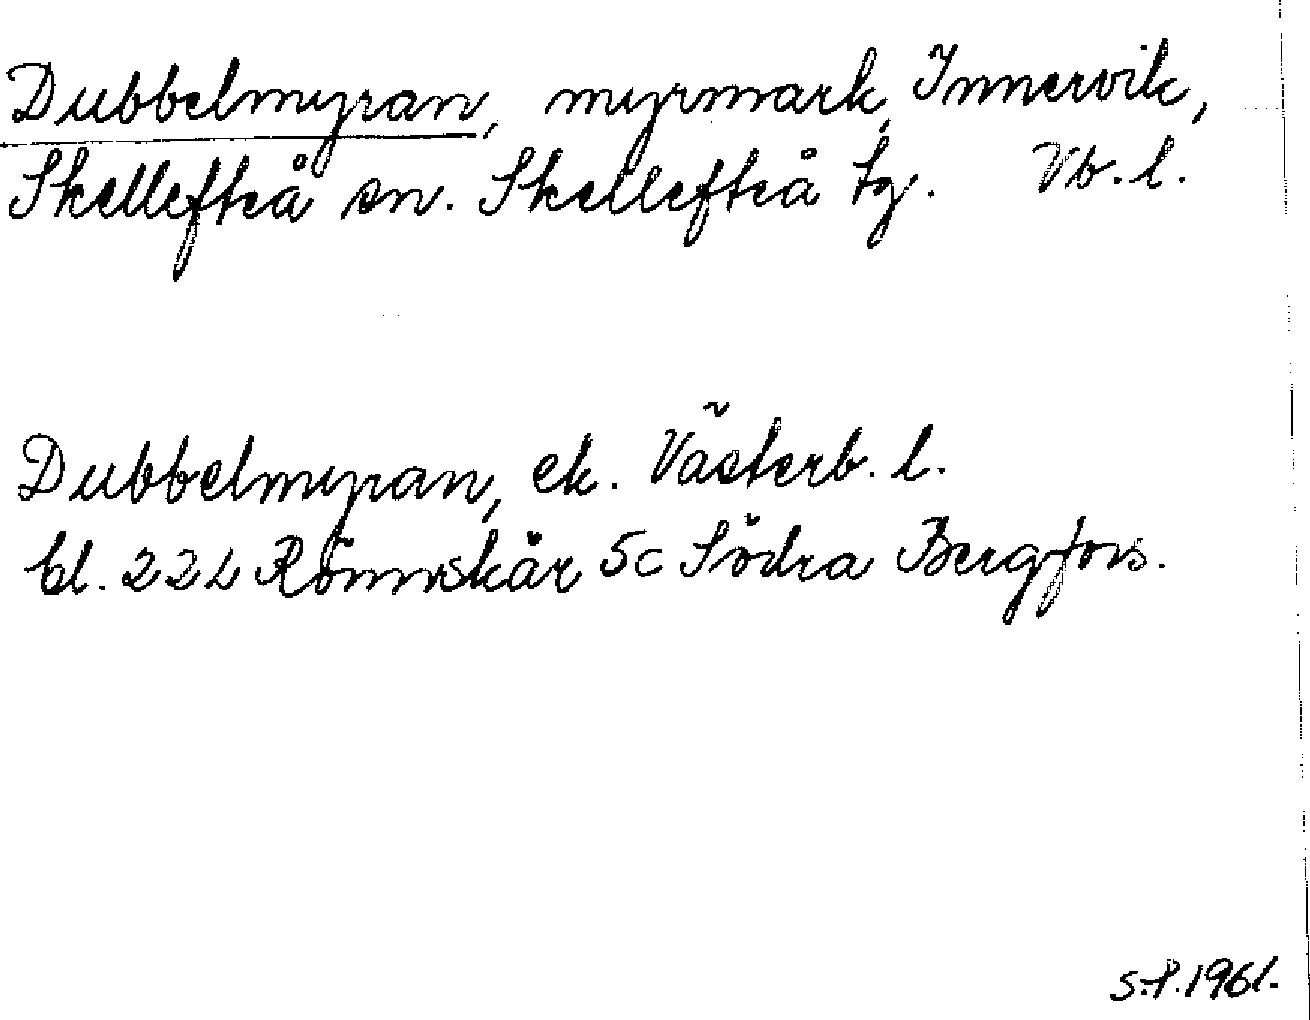 Dubbelmyran, myrmark, Innervik,
Skellefteå sn. Skellefteå tg. Vb. l.
Dubbelmyran, ek. Västerb. l.
bl. 22L Rönnskär 5c Södra Bergfors.
S.P. 1961.